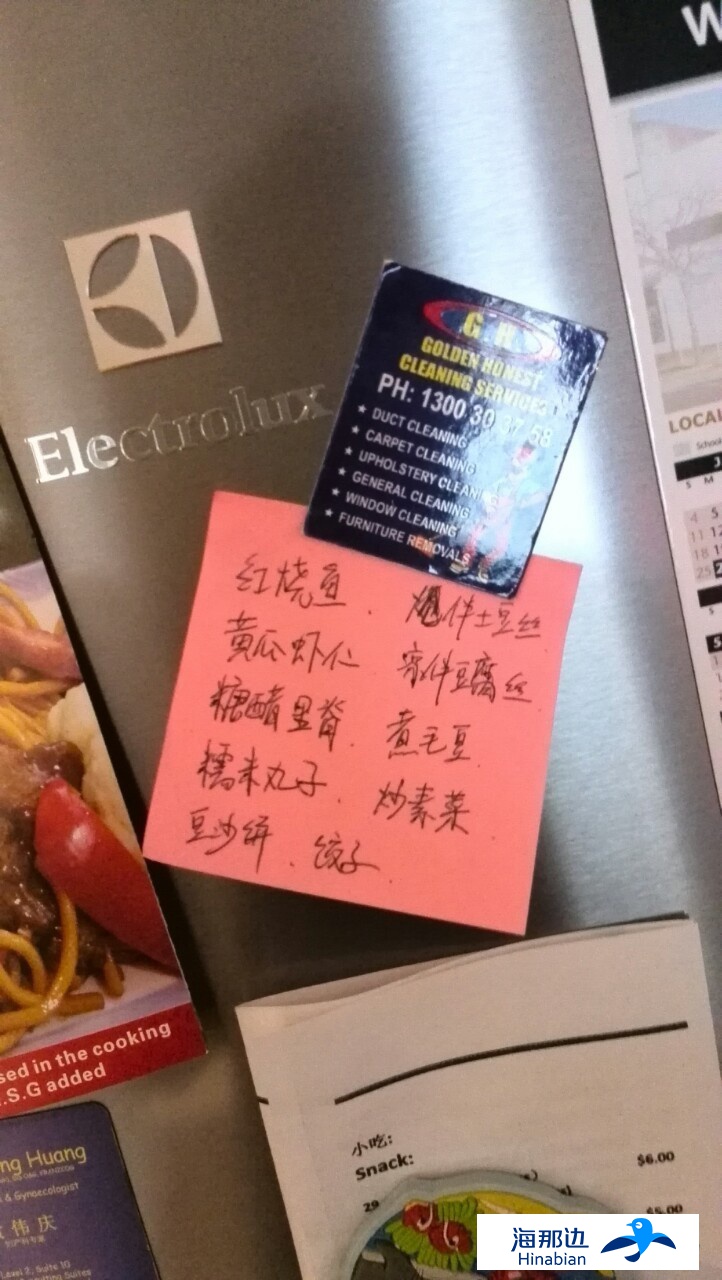 W
Electrolux
G H
GOLDEN HONEST
CLEANING SERVICES
PH: 1300 30 37 58
★ DUCT CLEANING
★ CARPET CLEANING
★ UPHOLSTERY CLEANING
★ GENERAL CLEANING
★ WINDOW CLEANING
★ FURNITURE REMOVALS
LOCAL
School
S M
4 5
11 12
18 19
25
红烧鱼. 伴土豆丝
黄瓜虾仁 伴豆腐丝
糖醋里脊. 煮毛豆
糯米丸子. 炒素菜
豆沙饼、饺子
sed in the cooking
.S.G added
ng Huang
& Gynaecologist
伟庆
Level 2, Suite 10
小吃:
Snack:
$6.00
29
$5.00
海那边
Hinabian